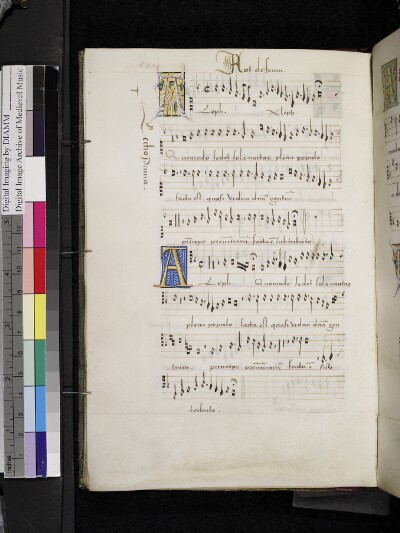 Digital Imaging by DIAMM
Digital Image Archive of Medieval Music
T
Lectio prima.
Aleph Aleph
Quomodo sedet sola civitas plena populo
facta est quasi vidua dña gentiũ
princeps facta ẽ sub tributo
Aleph Quomodo sedet sola civitas
plena populo facta est quasi vidua dña gen
tium princeps facta ẽ sub
tributo.